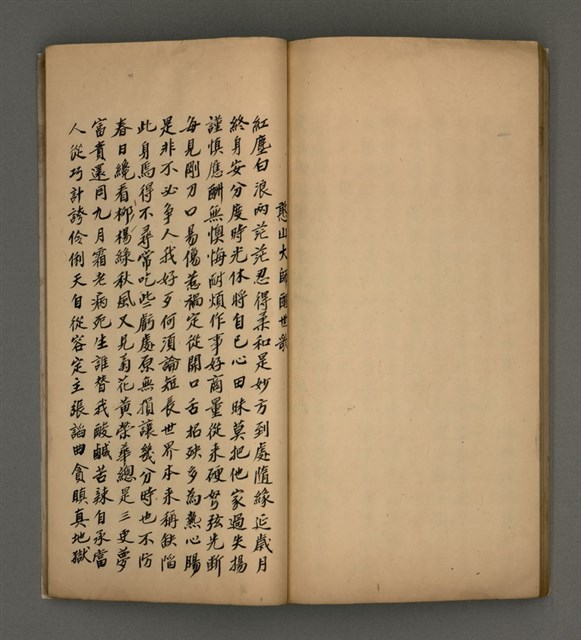 憨山大師醒世歌
紅塵白浪兩茫茫忍得柔和是妙方到處隨緣延歲月
終身安分度時光休將自己心田昧莫把他家過失揚
謹慎應酬無懊悔耐煩作事好商量從來硬弩弦先斷
每見剛刀口易傷惹禍定從開口舌招殃多為熱心腸
是非不必爭人我好歹何須論短長世界本來稱缺陷
此身焉得不尋常吃些虧處原無損讓幾分時也不防
春日纔看楊柳綠秋風又見菊花黃榮華總是三更夢
富貴還同九月霜老病死生誰替我酸鹹苦辣自承當
人從巧計誇伶俐天自從容定主張諂曲貪瞋真地獄